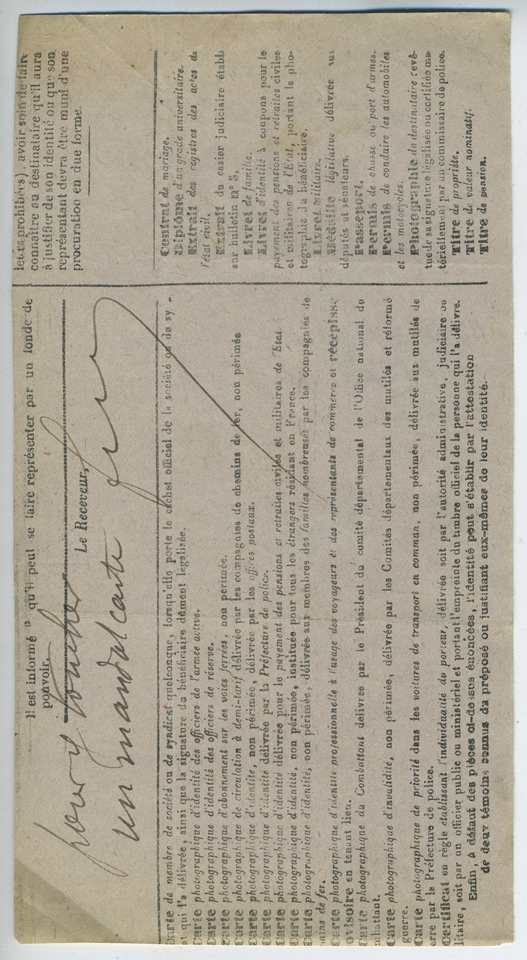 Il est informé qu'il peut se faire représenter par un fondé de
pouvoir.
pour y toucher
Le Receveur,
un mandat carte
lets prohibés), avoir soin de faire
connaître au destinataire qu'il aura
à justifier de son identité ou que son
représentant devra être muni d'une
procuration en due forme.
Carte de membre de société ou de syndicat quelconque, lorsqu'elle porte le cachet officiel de la société ou du sy-
et qui l'a délivrée, ainsi que la signature du bénéficiaire dûment légalisée
Carte photographique d'identité des officiers de l'armée active.
Carte photographique d'identité des officiers de réserve.
Carte photographique d'abonnement sur les voies ferrées, non périmée.
Carte photographique de circulation à demi-tarif délivrée par les compagnies de chemins de fer, non périmée
Carte photographique d'identité, non périmée, délivrée par les offices postaux.
Carte photographique d'identité délivrée par la Préfecture de police.
Carte photographique d'identité délivrée pour le payement des pensions et retraites civiles et militaires de l'État.
Carte photographique d'identité, non périmée, instituée pour tous les étrangers résidant en France.
Carte photographique d'identité, non périmée, délivrée aux membres des familles nombreuses par les compagnies de
mins de fer.
Carte photographique d'identité professionnelle à l'usage des voyageurs et des représentants de commerce et récépissé
ovisoire en tenant lieu.
Carte photographique du Combattant délivrée par le Président du comité départemental de l'Office national du
mbattant.
Carte photographique d'invalidité, non périmée, délivrée par les Comités départementaux des mutilés et réformé
guerre.
Carte photographique de priorité dans les voitures de transport en commun, non périmée, délivrée aux mutilés de
erre par la Préfecture de police.
Certificat en règle établissant l'individualité du porteur, délivré soit par l'autorité administrative, judiciaire ou
litaire, soit par un officier public ou ministériel et portant l'empreinte du timbre officiel de la personne qui l'a délivré.
Enfin, à défaut des pièces ci-dessus énoncées, l'identité peut s'établir par l'attestation
de deux témoins connus du préposé ou justifiant eux-mêmes de leur identité.
Contrat de mariage.
Diplôme d'un grade universitaire.
Extrait des registres des actes de
l'état civil.
Extrait du casier judiciaire établi
sur bulletin n°
Livret de famille.
Livret d'identité à coupons pour le
payement des pensions et retraites civiles
et militaires de l'État, portant la pho-
tographie du bénéficiaire.
Livret militaire.
Médaille législative délivrée aux
députés et sénateurs.
Passeport.
Permis de chasse ou port d'armes.
Permis de conduire les automobiles
et les motocycles.
Photographie du destinataire revê-
tue de sa signature légalisée ou certifiée ma-
tériellement par un commissaire de police.
Titre de propriété.
Titre de valeur nominatif.
Titre de pension.